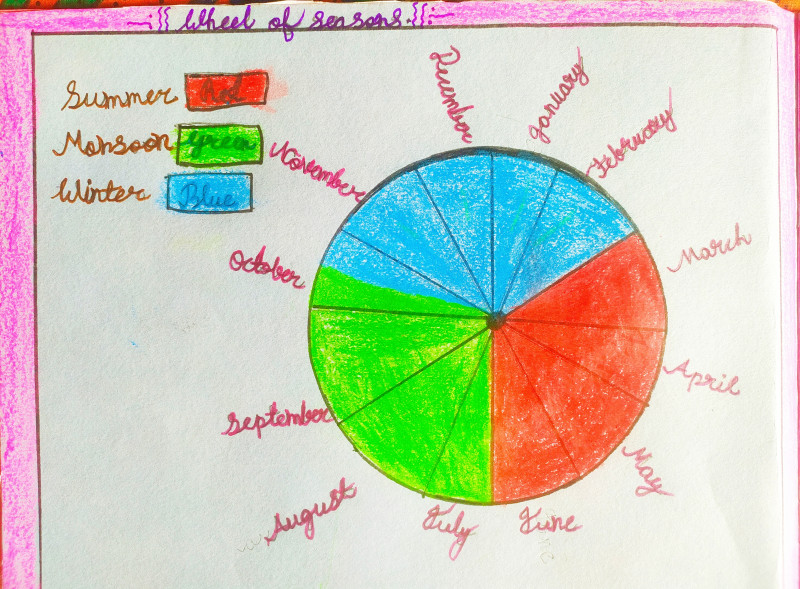 Wheel of seasons.
Summer Red
Monsoon Green
Winter Blue
December
January
February
March
April
May
June
July
August
September
October
November